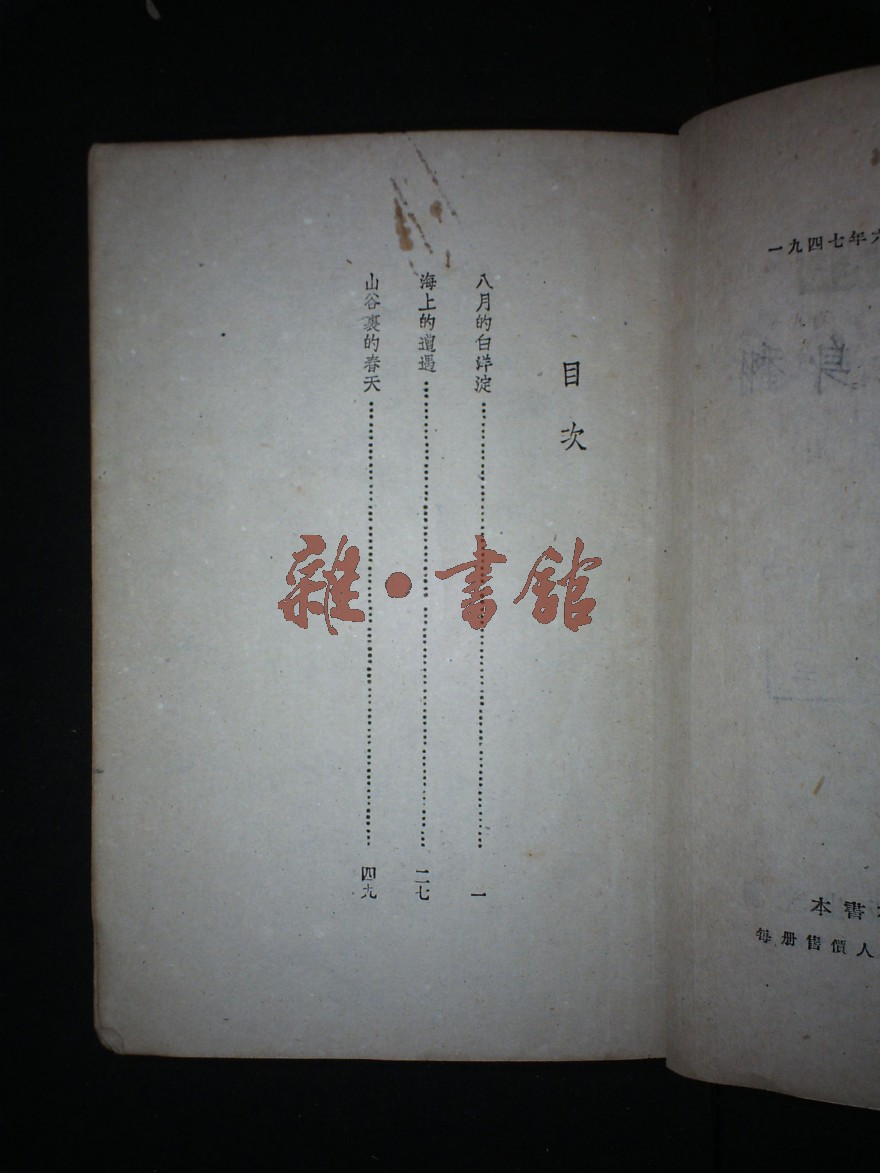 目次
八月的白洋淀……一
海上的遭遇……二七
山谷裏的春天……四九
雜·書館
一九四七年六
本書
每册售價人